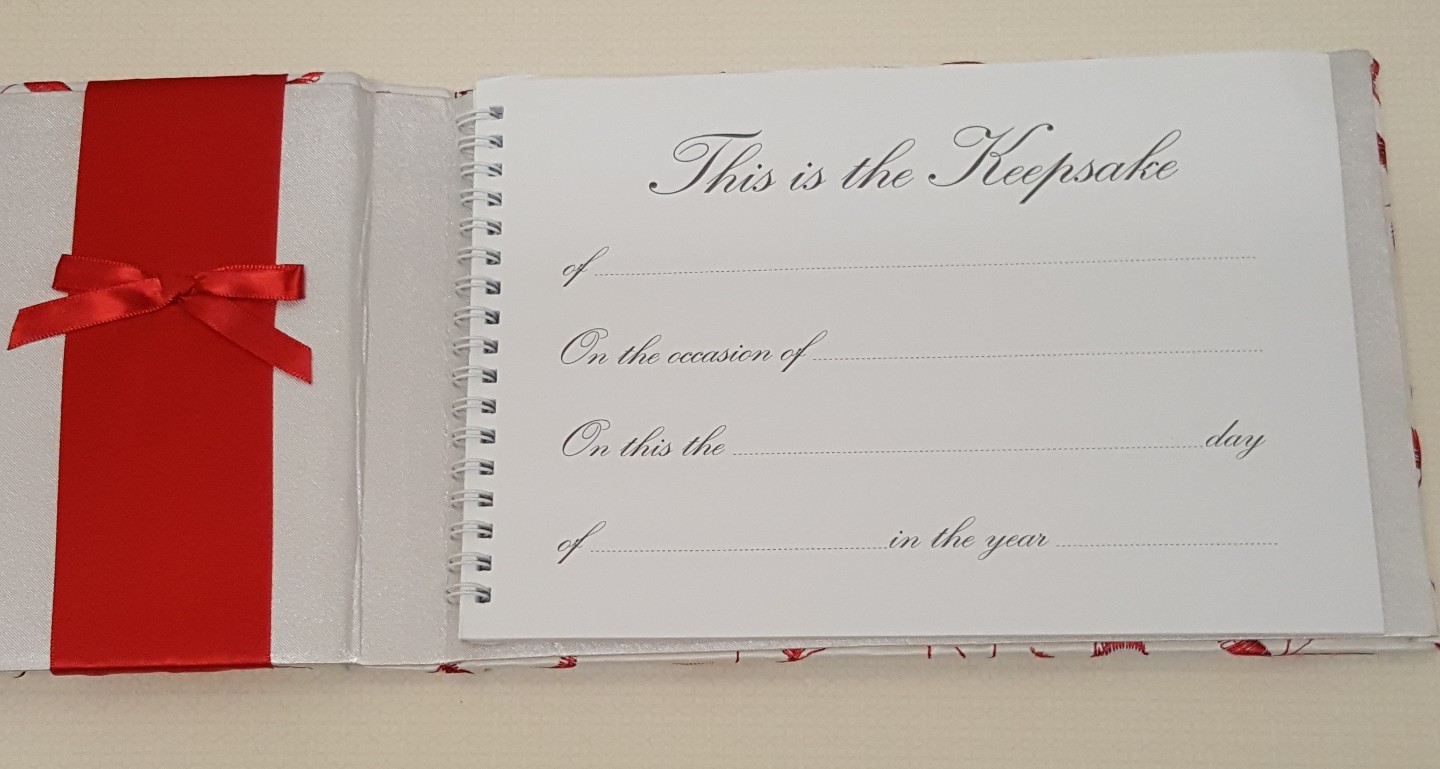 This is the Keepsake
of
On the occasion of
On this the day
of in the year